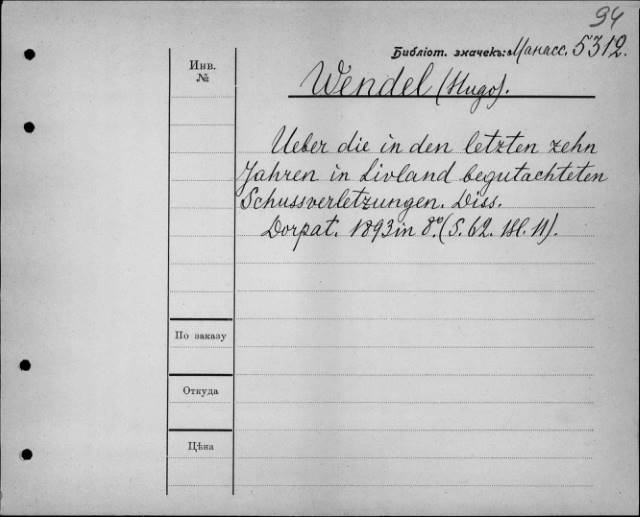 94
Библіот. значекъ: Манасс. 5312.
Инв.
№
Wendel (Hugo).
Ueber die in den letzten zehn
Jahren in Livland begutachteten
Schussverletzungen. Diss.
Dorpat. 1893 in 8º. (S. 62. Bl. 11).
По заказу
Откуда
Цѣна